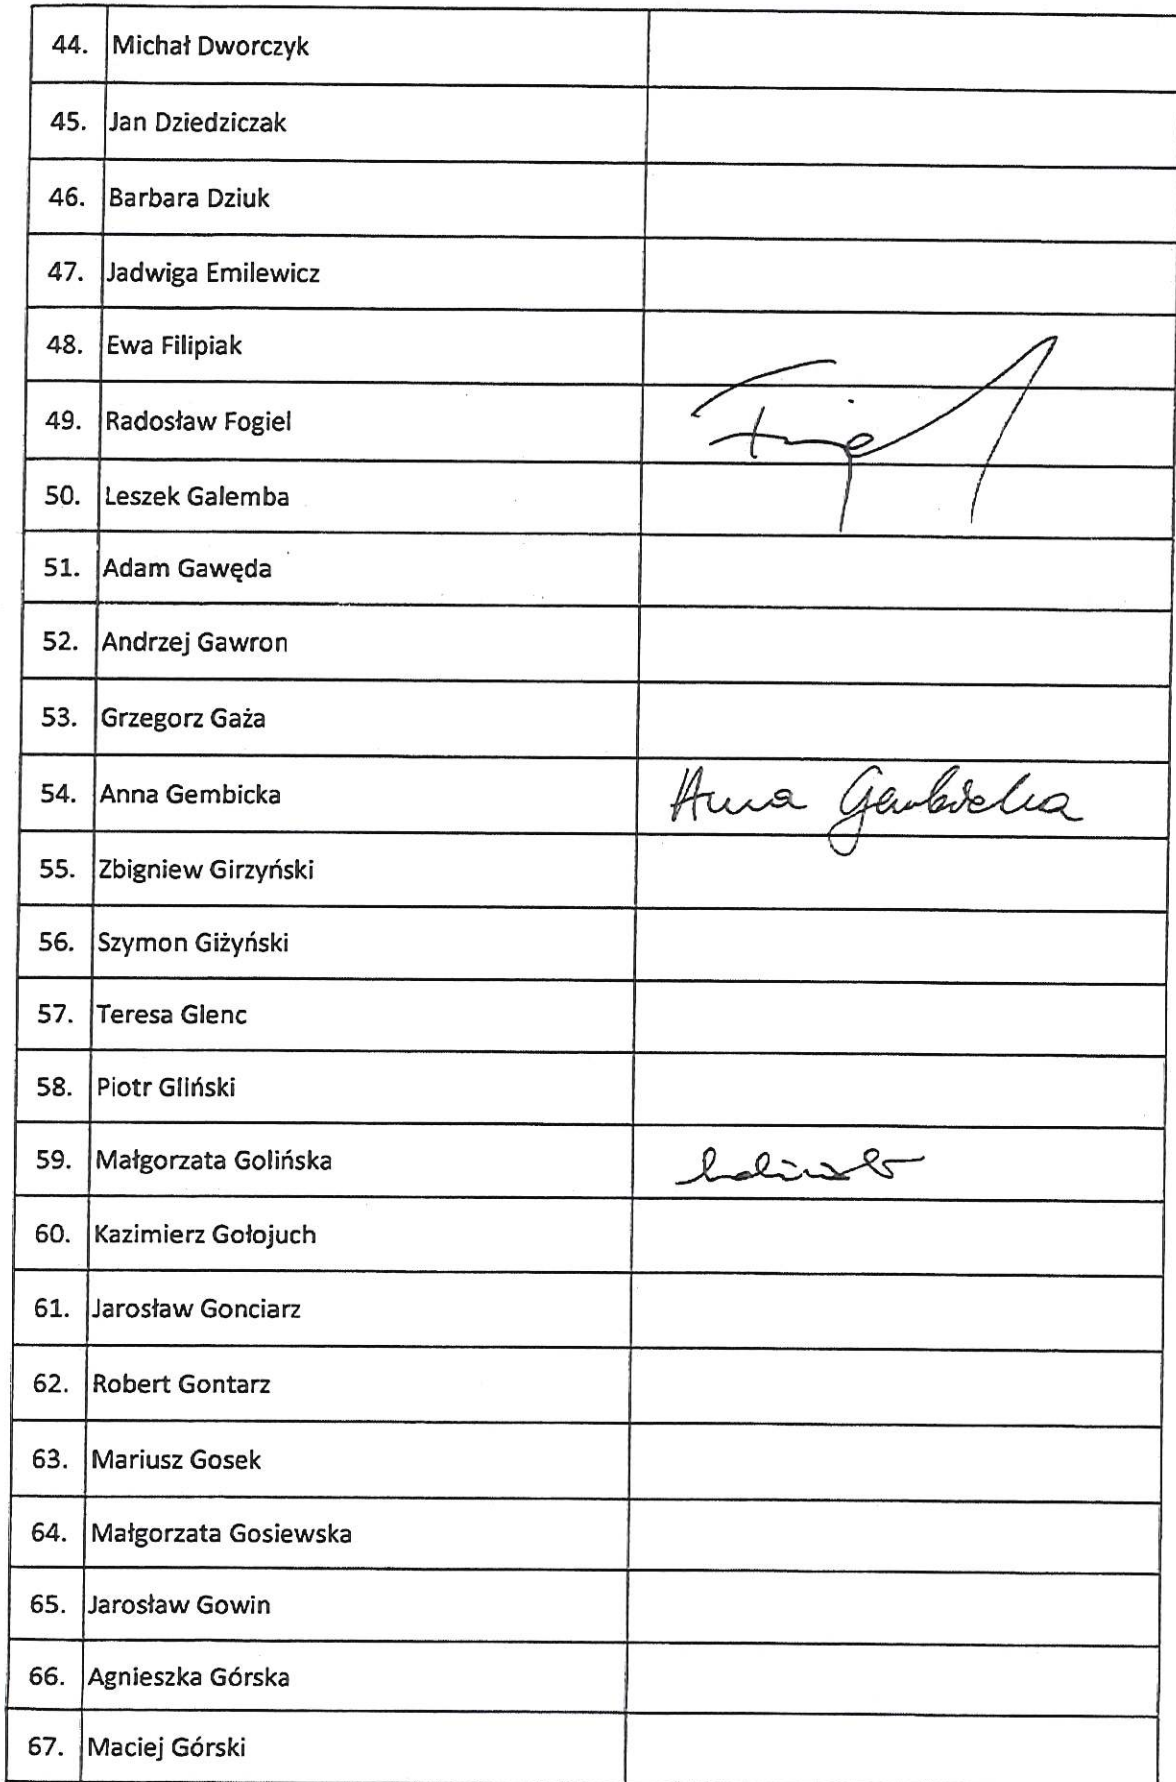 44. Michał Dworczyk
45. Jan Dziedziczak
46. Barbara Dziuk
47. Jadwiga Emilewicz
48. Ewa Filipiak
49. Radosław Fogiel
50. Leszek Galemba
51. Adam Gawęda
52. Andrzej Gawron
53. Grzegorz Gaża
54. Anna Gembicka Anna Gembicka
55. Zbigniew Girzyński
56. Szymon Giżyński
57. Teresa Glenc
58. Piotr Gliński
59. Małgorzata Golińska
60. Kazimierz Gołojuch
61. Jarosław Gonciarz
62. Robert Gontarz
63. Mariusz Gosek
64. Małgorzata Gosiewska
65. Jarosław Gowin
66. Agnieszka Górska
67. Maciej Górski